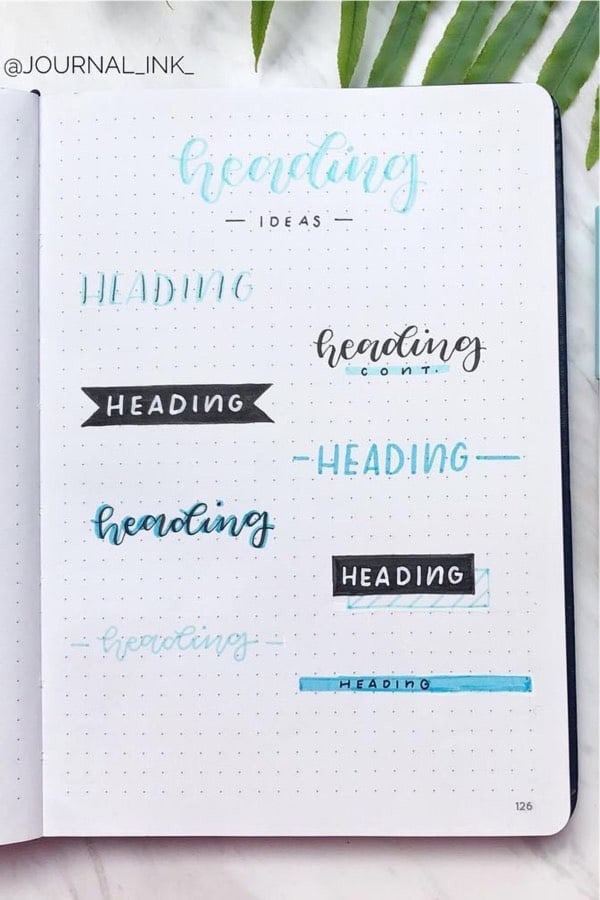 @JOURNAL_INK_
heading
— IDEAS —
HEADING
heading
CONT.
HEADING
-HEADING—
heading
HEADING
- heading -
HEADING
126